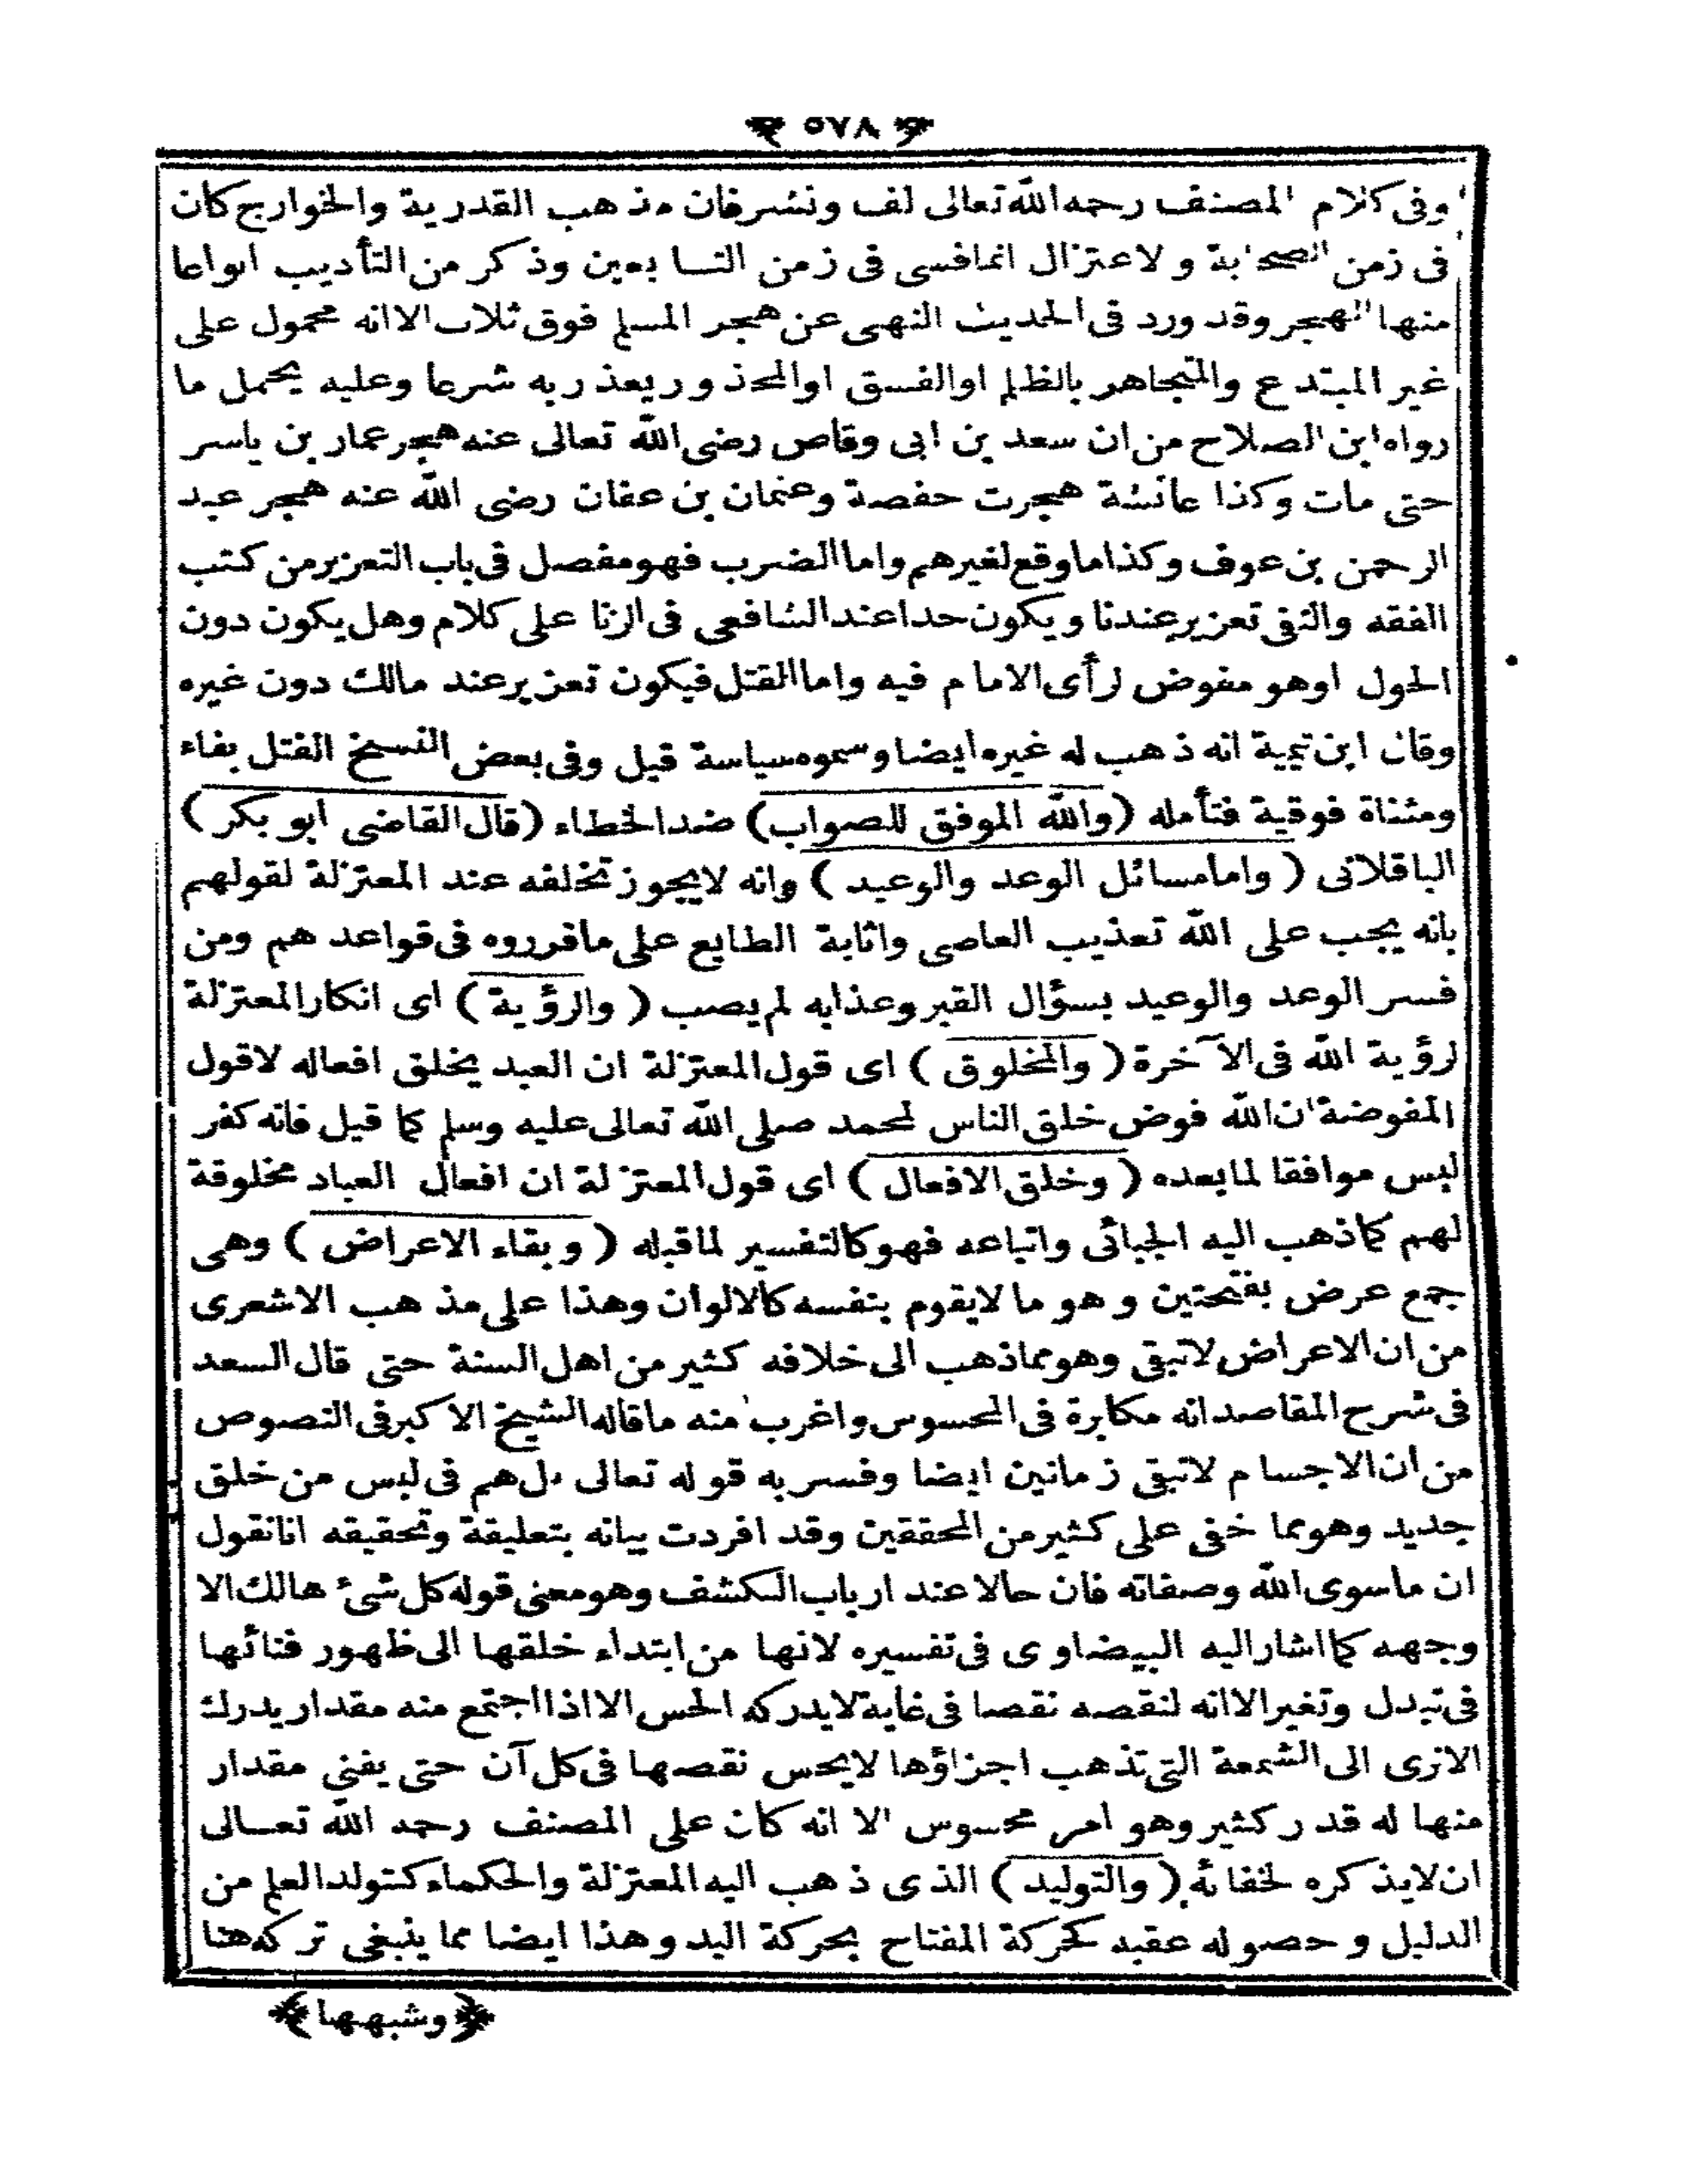 ﴿ ٥٧٨ ﴾
وفى كلام المصنف رحمه الله تعالى لف ونشر فان مذهب القدرية والخوارج كان
فى زمن الصحابة و لاعتزال انمافسى فى زمن التابعين وذكر من التأديب انواعا
منها الهجر وقد ورد فى الحديث النهى عن هجر المسلم فوق ثلاث الاانه محمول على
غير المبتدع والمتجاهر بالظلم اوالفسق اوالمحذور يعذر به شرعا وعليه يحمل ما
رواه ابن الصلاح من ان سعد بن ابى وقاص رضى الله تعالى عنه هجر عمار بن ياسر
حتى مات وكذا عائشة هجرت حفصة وعثمان بن عفان رضى الله عنه هجر عبد
الرحمن بن عوف وكذا ماوقع لغيرهم واما الضرب فهو مفصل فى باب التعزير من كتب
الفقه والنفى تعزير عندنا ويكون حدا عند الشافعى فى الزنا على كلام وهل يكون دون
الحول اوهو مفوض لرأى الامام فيه واما القتل فيكون تعزير عند مالك دون غيره
وقال ابن تيمية انه ذهب له غيره ايضا وسموه سياسة قيل وفى بعض النسخ الفتل بفاء
ومثناة فوقية فتأمله (والله الموفق للصواب) ضد الخطاء (قال القاضى ابو بكر)
الباقلانى (وامامسائل الوعد والوعيد) وانه لايجوز تخلفه عند المعتزلة لقولهم
بانه يجب على الله تعذيب العاصى واثابة الطايع على ماقرروه فى قواعدهم ومن
فسر الوعد والوعيد بسؤال القبر وعذابه لم يصب (والرؤية) اى انكار المعتزلة
لرؤية الله فى الآخرة (والمخلوق) اى قول المعتزلة ان العبد يخلق افعاله لاقول
المفوضة ان الله فوض خلق الناس لمحمد صلى الله تعالى عليه وسلم كما قيل فانه كفر
ليس موافقا لمابعده (وخلق الافعال) اى قول المعتزلة ان افعال العباد مخلوقة
لهم كماذهب اليه الجبائى واتباعه فهو كالتفسير لماقبله (وبقاء الاعراض) وهى
جمع عرض بفتحتين و هو ما لايقوم بنفسه كالالوان وهذا على مذهب الاشعرى
من ان الاعراض لاتبقى وهومماذهب الى خلافه كثير من اهل السنة حتى قال السعد
فى شرح المقاصد انه مكابرة فى المحسوس واغرب منه ماقاله الشيخ الاكبر فى النصوص
من ان الاجسام لاتبقى زمانين ايضا وفسر به قوله تعالى بل هم فى لبس من خلق
جديد وهومما خفى على كثير من المحققين وقد افردت بيانه بتعليقة وتحقيقه انانقول
ان ماسوى الله وصفاته فان حالا عند ارباب الكشف وهو معنى قوله كل شىء هالك الا
وجهه كمااشار اليه البيضاوى فى تفسيره لانها من ابتداء خلقها الى ظهور فنائها
فى تبدل وتغير الاانه لنقصه نقصا فى غاية لايدركه الحس الااذا اجتمع منه مقدار يدرك
الاترى الى الشمعة التى تذهب اجزاؤها لايحس نقصها فى كل آن حتى يفنى مقدار
منها له قدر كثير وهو امر محسوس الا انه كان على المصنف رحمه الله تعالى
ان لايذكره لخفائه (والتوليد) الذى ذهب اليه المعتزلة والحكماء كتولد العلم من
الدليل و حصوله عقبه كحركة المفتاح بحركة اليد وهذا ايضا مما ينبغى تركه هنا
﴿وشبهها﴾